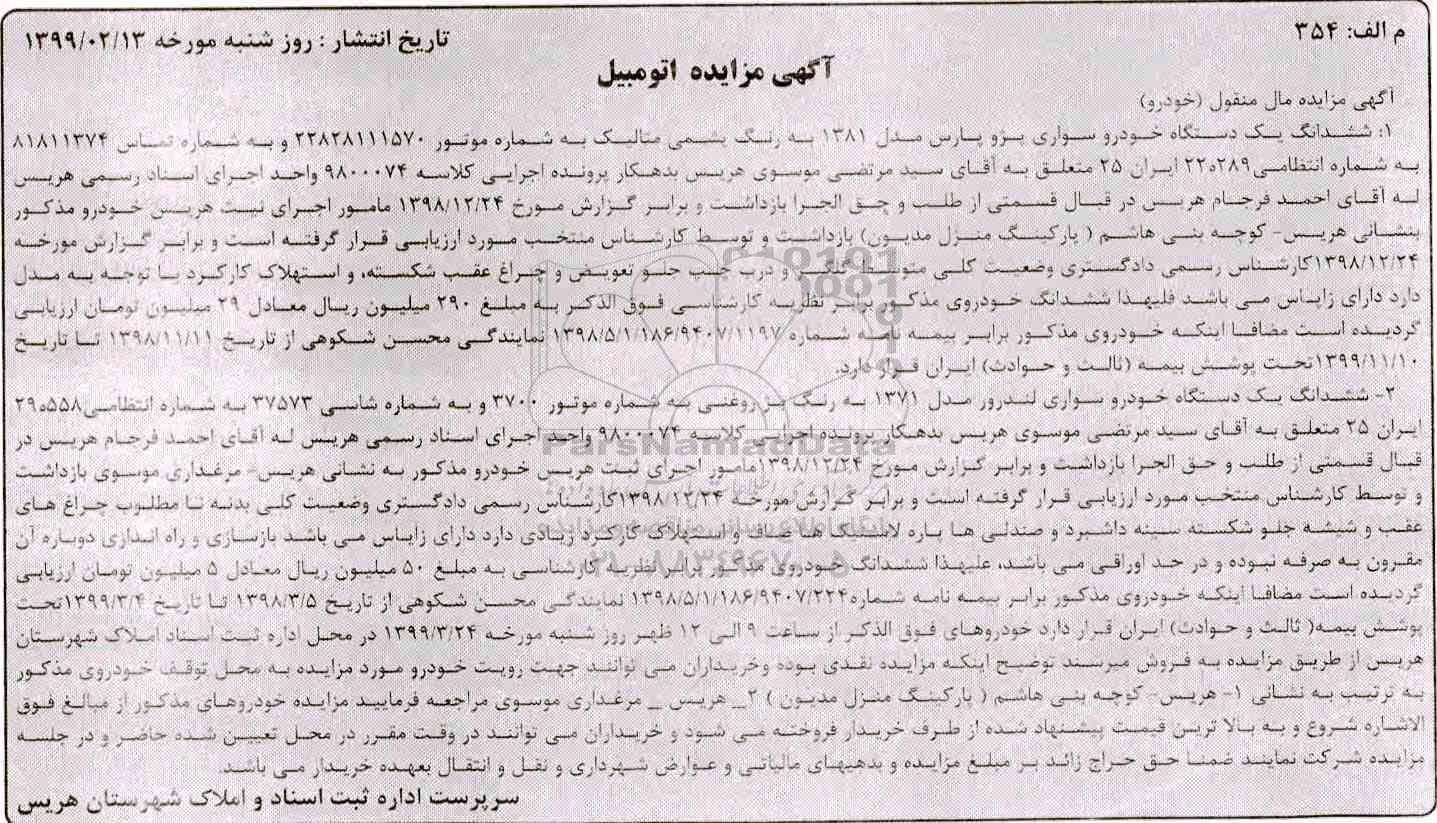 م الف: ۳۵۴
تاریخ انتشار : روز شنبه مورخه ۱۳۹۹/۰۲/۱۳
آگهی مزایده اتومبیل
آگهی مزایده مال منقول (خودرو)
۱: ششدانگ یک دستگاه خودرو سواری پژو پارس مدل ۱۳۸۱ به رنگ یشمی متالیک به شماره موتور ۲۲۸۲۸۱۱۱۵۷۰ و به شماره تماس ۸۱۸۱۱۳۷۴
به شماره انتظامی۲۸۹ه۲۲ ایران ۲۵ متعلق به آقای سید مرتضی موسوی هریس بدهکار پرونده اجرایی کلاسه ۹۸۰۰۰۷۴ واحد اجرای اسناد رسمی هریس
له آقای احمد فرجام هریس در قبال قسمتی از طلب و حق الجرا بازداشت و برابر گزارش مورخ ۱۳۹۸/۱۲/۲۴ مامور اجرای ثبت هریس خودرو مذکور
بنشانی هریس- کوچه بنی هاشم ( پارکینگ منزل مدیون) بازداشت و توسط کارشناس منتخب مورد ارزیابی قرار گرفته است و برابر گزارش مورخه
۱۳۹۸/۱۲/۲۴کارشناس رسمی دادگستری وضعیت کلی متوسط گلگیر و درب چپ جلو تعویض و چراغ عقب شکسته، و استهلاک کارکرد با توجه به مدل
دارد دارای زاپاس می باشد فلیهذا ششدانگ خودروی مذکور برابر نظریه کارشناسی فوق الذکر به مبلغ ۲۹۰ میلیون ریال معادل ۲۹ میلیون تومان ارزیابی
گردیده است مضافا اینکه خودروی مذکور برابر بیمه نامه شماره ۱۳۹۸/۵/۱/۱۸۶/۹۴۰۷/۱۱۹۷ نمایندگی محسن شکوهی از تاریخ ۱۳۹۸/۱۱/۱۱ تا تاریخ
۱۳۹۹/۱۱/۱۰تحت پوشش بیمه (ثالث و حوادث) ایران قرار دارد.
۲- ششدانگ یک دستگاه خودرو سواری لندرور مدل ۱۳۷۱ به رنگ بژ روغنی به شماره موتور ۳۷۰۰ و به شماره شاسی ۳۷۵۷۳ به شماره انتظامی۵۵۸ه۲۹
ایران ۲۵ متعلق به آقای سید مرتضی موسوی هریس بدهکار پرونده اجرایی کلاسه ۹۸۰۰۰۷۴ واحد اجرای اسناد رسمی هریس له آقای احمد فرجام هریس در
قبال قسمتی از طلب و حق الجرا بازداشت و برابر گزارش مورخ ۱۳۹۸/۱۲/۲۴مامور اجرای ثبت هریس خودرو مذکور به نشانی هریس- مرغداری موسوی بازداشت
و توسط کارشناس منتخب مورد ارزیابی قرار گرفته است و برابر گزارش مورخه ۱۳۹۸/۱۲/۲۴کارشناس رسمی دادگستری وضعیت کلی بدنه نا مطلوب چراغ های
عقب و شیشه جلو شکسته سینه داشبرد و صندلی ها پاره لاستیک ها صاف و استهلاک کارکرد زیادی دارد دارای زاپاس می باشد بازسازی و راه اندازی دوباره آن
مقرون به صرفه نبوده و در حد اوراقی می باشد، علیهذا ششدانگ خودروی مذکور برابر نظریه کارشناسی به مبلغ ۵۰ میلیون ریال معادل ۵ میلیون تومان ارزیابی
گردیده است مضافا اینکه خودروی مذکور برابر بیمه نامه شماره۱۳۹۸/۵/۱/۱۸۶/۹۴۰۷/۲۲۴ نمایندگی محسن شکوهی از تاریخ ۱۳۹۸/۳/۵ تا تاریخ ۱۳۹۹/۳/۴تحت
پوشش بیمه( ثالث و حوادث) ایران قرار دارد خودروهای فوق الذکر از ساعت ۹ الی ۱۲ ظهر روز شنبه مورخه ۱۳۹۹/۳/۲۴ در محل اداره ثبت اسناد املاک شهرستان
هریس از طریق مزایده به فروش میرسند توضیح اینکه مزایده نقدی بوده وخریداران می توانند جهت رویت خودرو مورد مزایده به محل توقف خودروی مذکور
به ترتیب به نشانی ۱- هریس- کوچه بنی هاشم ( پارکینگ منزل مدیون ) ۲_ هریس _ مرغداری موسوی مراجعه فرمایید مزایده خودروهای مذکور از مبالغ فوق
الاشاره شروع و به بالا ترین قیمت پیشنهاد شده از طرف خریدار فروخته می شود و خریداران می توانند در وقت مقرر در محل تعیین شده حاضر و در جلسه
مزایده شرکت نمایند ضمنا حق حراج زائد بر مبلغ مزایده و بدهیهای مالیاتی و عوارض شهرداری و نقل و انتقال بعهده خریدار می باشد.
سرپرست اداره ثبت اسناد و املاک شهرستان هریس
ParsNamadData